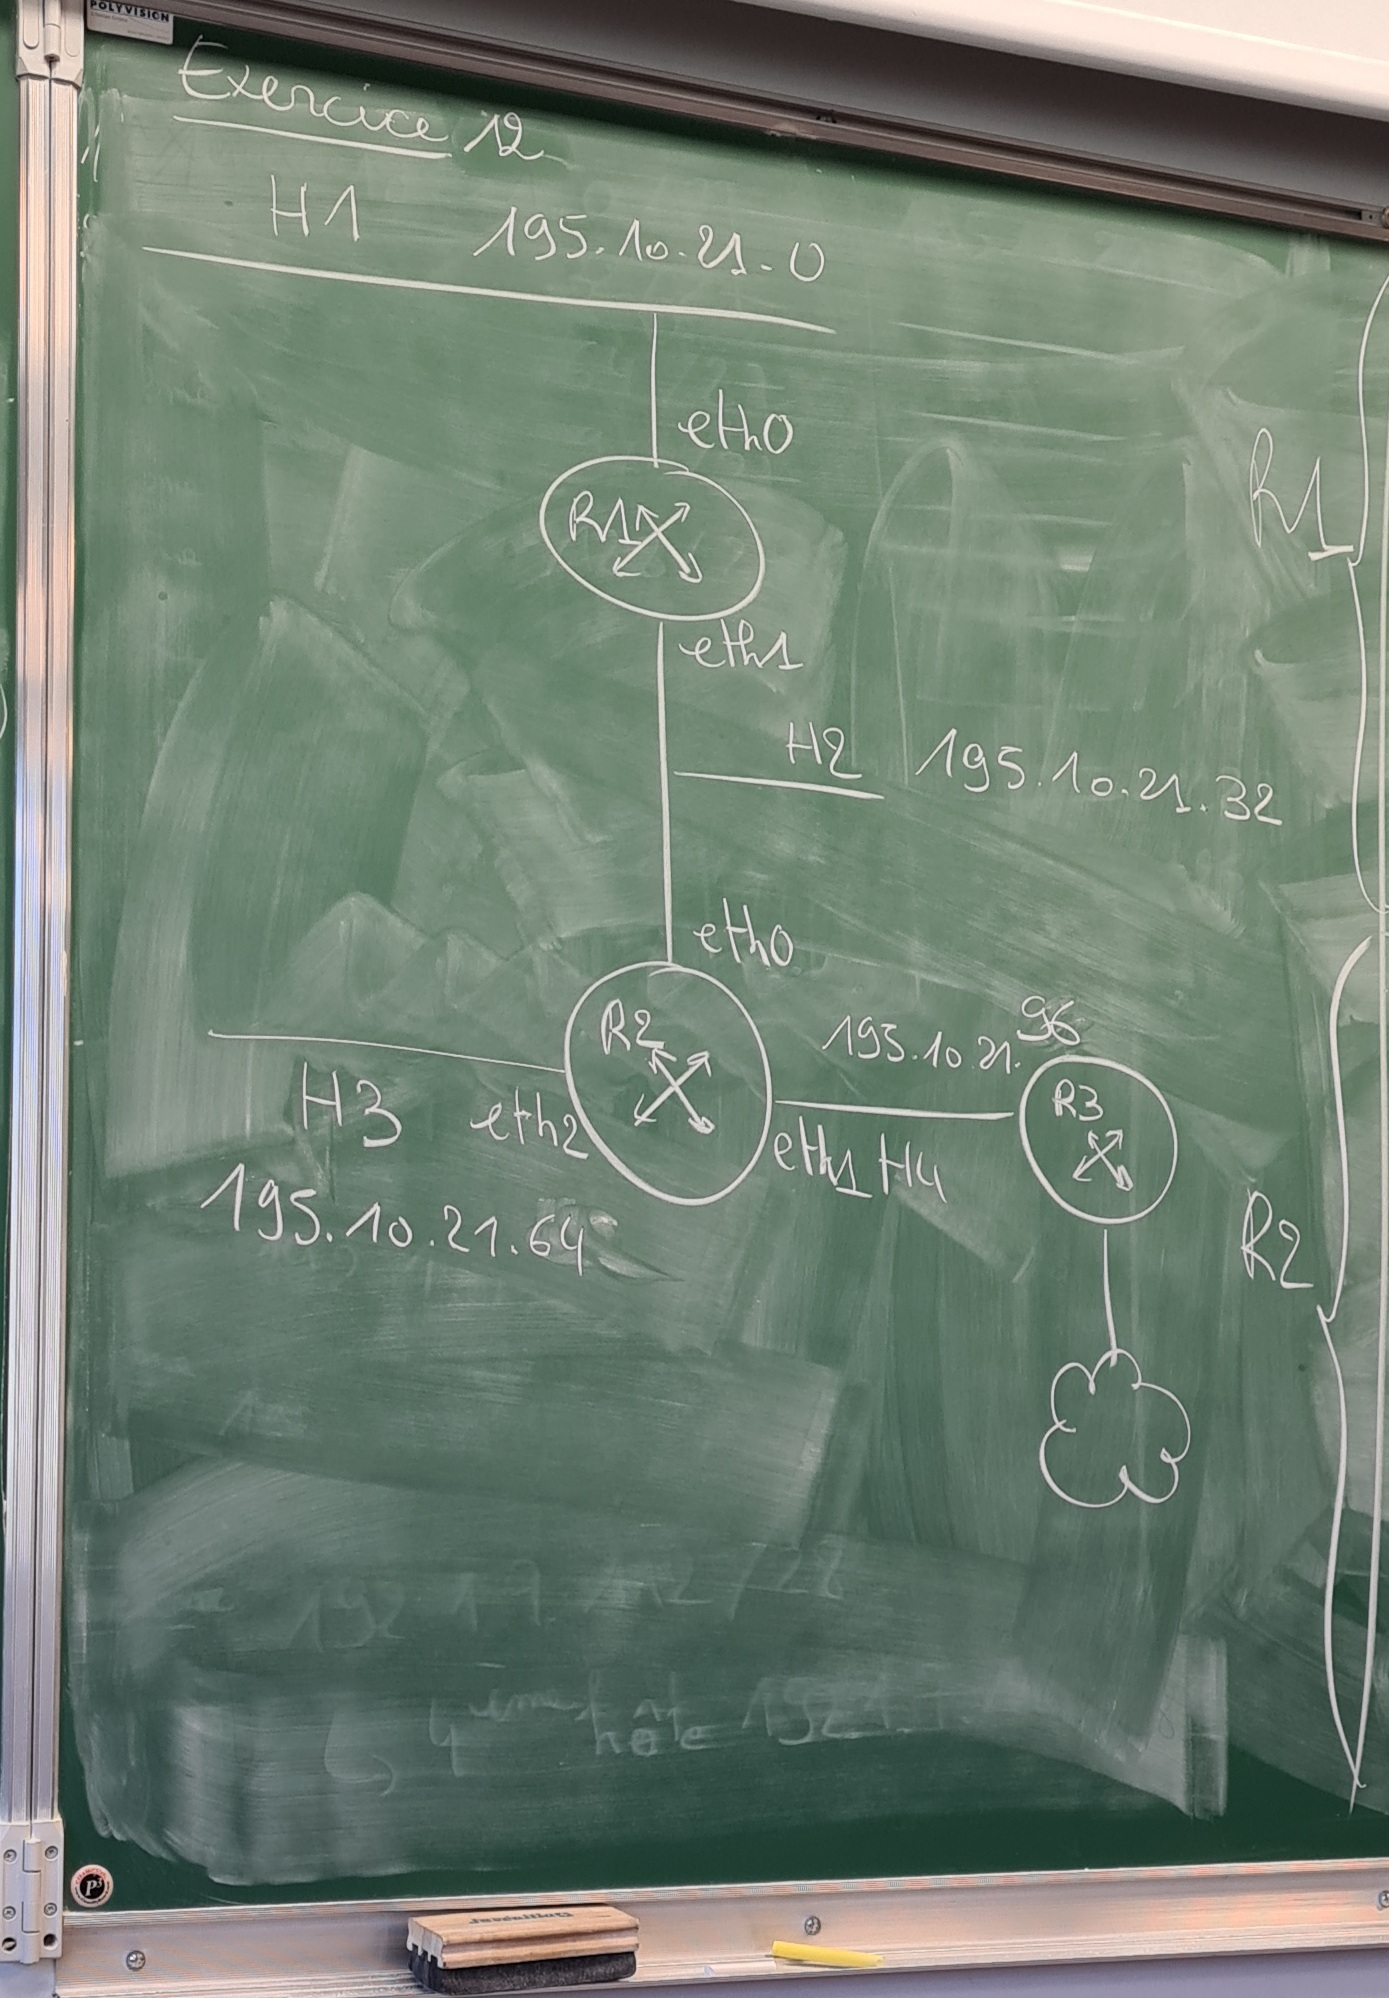 POLYVISION
Exercice 12
H1 195.10.21.0
eth0
R1
R1
eth1
H2 195.10.21.32
eth0
R2
195.10.21.96
R3
H3 eth2
eth1 H4
195.10.21.64
R2
192 17 12/28
hote